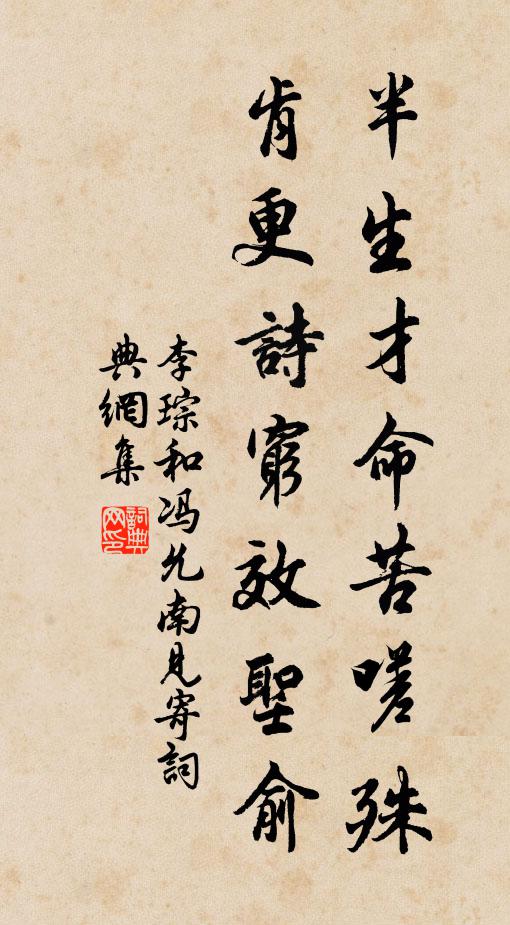 半生才命苦嗟殊
肯更詩窮效聖俞
李琮和冯允南見寄詞
典網集
詞典網印